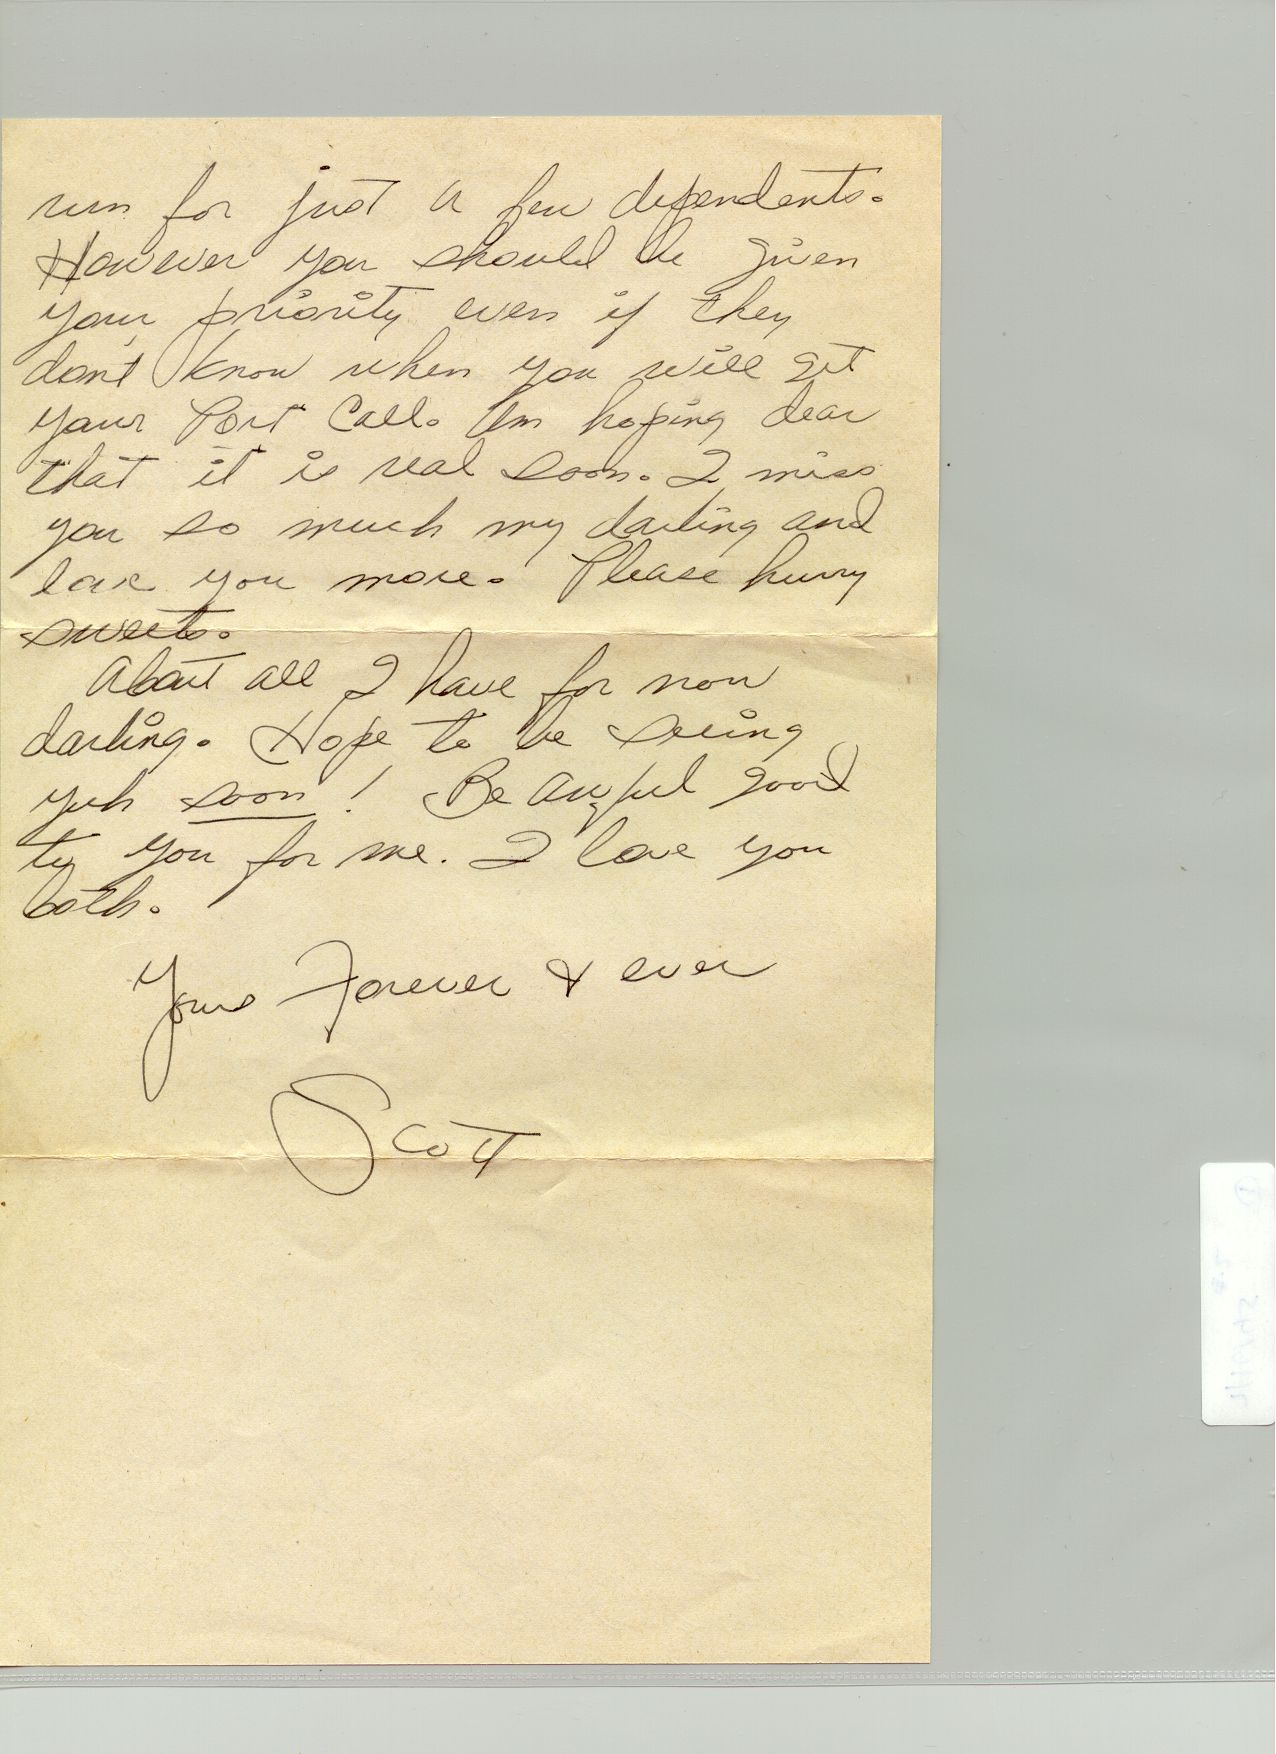 run for just a few dependents.
However you should be given
your priority even if they
don't know when you will get
your Port Call. Am hoping dear
that it is real soon. I miss
you so much my darling and
love you more. Please hurry
sweets.
About all I have for now
darling. Hope to be seeing
yuh soon! Be awful good
ty you for me. I love you
both.
Yours Forever & ever
Scott